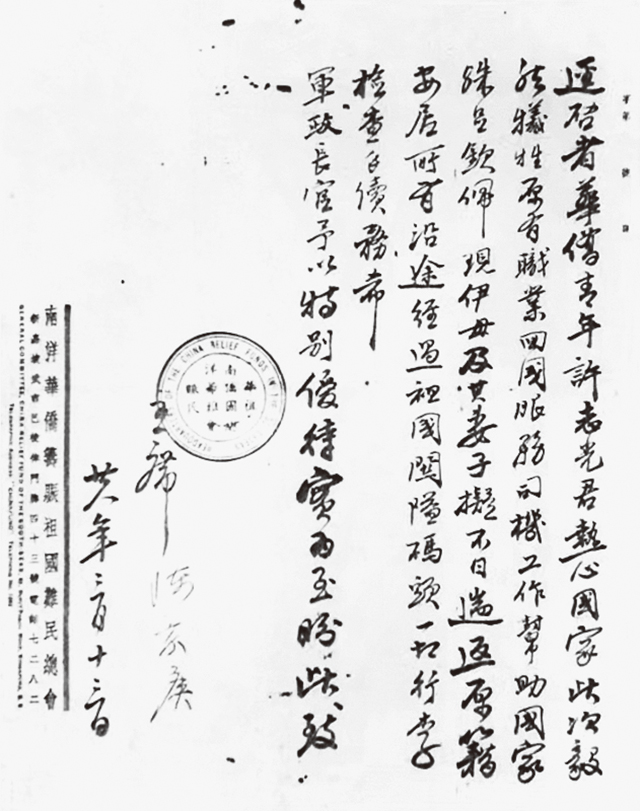 逕啓者華僑青年許志光君熱心國家此次毅
然犧牲原有職業回國服務司機工作幫助國家
殊足欽佩現伊母及其妻子擬不日遄返原籍
安居所有沿途經過祖國關隘碼頭一切行李
檢查手續務希
軍政長官予以特別優待實為至盼此致
主席 陳嘉庚
廿八年三月十三日
南洋華僑籌賑祖國難民總會
新嘉坡武吉巴梭律門牌四十三號電話七二八二
GENERAL COMMITTEE, CHINA RELIEF FUND OF THE SOUTH SEAS